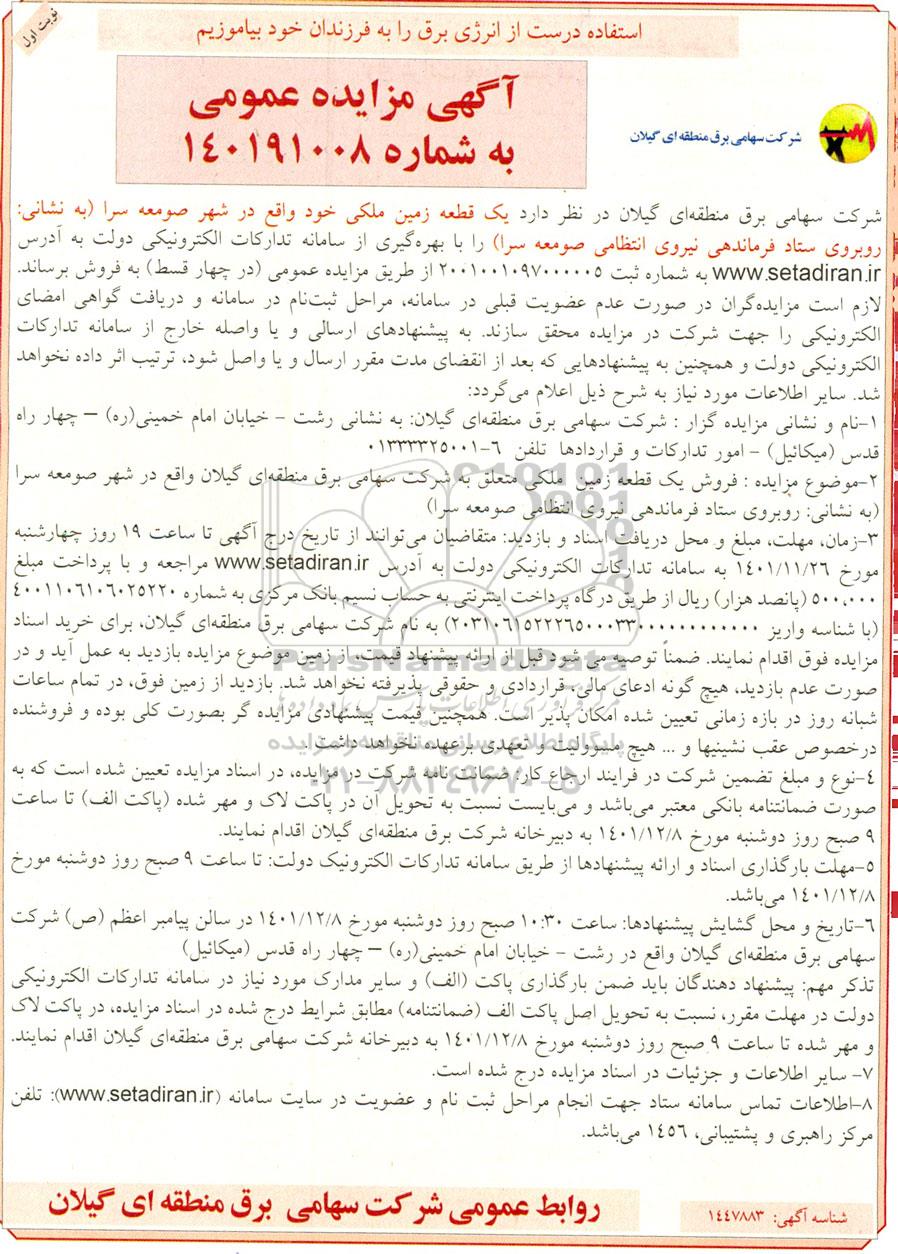 نوبت اول
استفاده درست از انرژی برق را به فرزندان خود بیاموزیم
آگهی مزایده عمومی
به شماره ۱۴۰۱۹۱۰۰۸
شرکت سهامی برق منطقه ای گیلان
شرکت سهامی برق منطقه‌ای گیلان در نظر دارد یک قطعه زمین ملکی خود واقع در شهر صومعه سرا (به نشانی:
روبروی ستاد فرماندهی نیروی انتظامی صومعه سرا) را با بهره‌گیری از سامانه تدارکات الکترونیکی دولت به آدرس
www.setadiran.ir به شماره ثبت ۲۰۰۱۰۰۱۰۹۷۰۰۰۰۰۵ از طریق مزایده عمومی (در چهار قسط) به فروش برساند.
لازم است مزایده‌گران در صورت عدم عضویت قبلی در سامانه، مراحل ثبت‌نام در سامانه و دریافت گواهی امضای
الکترونیکی را جهت شرکت در مزایده محقق سازند. به پیشنهادهای ارسالی و یا واصله خارج از سامانه تدارکات
الکترونیکی دولت و همچنین به پیشنهادهایی که بعد از انقضای مدت مقرر ارسال و یا واصل شود، ترتیب اثر داده نخواهد
شد. سایر اطلاعات مورد نیاز به شرح ذیل اعلام می‌گردد:
۱-نام و نشانی مزایده گزار : شرکت سهامی برق منطقه‌ای گیلان: به نشانی رشت - خیابان امام خمینی(ره) – چهار راه
قدس (میکائیل) - امور تدارکات و قراردادها تلفن ۶-۰۱۳۳۳۳۲۵۰۰۱
۲-موضوع مزایده : فروش یک قطعه زمین ملکی متعلق به شرکت سهامی برق منطقه‌ای گیلان واقع در شهر صومعه سرا
(به نشانی: روبروی ستاد فرماندهی نیروی انتظامی صومعه سرا)
۳-زمان، مهلت، مبلغ و محل دریافت اسناد و بازدید: متقاضیان می‌توانند از تاریخ درج آگهی تا ساعت ۱۹ روز چهارشنبه
مورخ ۱۴۰۱/۱۱/۲۶ به سامانه تدارکات الکترونیکی دولت به آدرس www.setadiran.ir مراجعه و با پرداخت مبلغ
۵۰۰,۰۰۰ (پانصد هزار) ریال از طریق درگاه پرداخت اینترنتی به حساب نسیم بانک مرکزی به شماره ۴۰۰۱۱۰۶۱۰۶۰۲۵۲۲۰
(با شناسه واریز ۲۰۳۱۰۶۱۵۲۲۲۶۵۰۰۰۳۳۰۰۰۰۰۰۰۰۰۰۰۰) به نام شرکت سهامی برق منطقه‌ای گیلان، برای خرید اسناد
مزایده فوق اقدام نمایند. ضمناً توصیه می شود قبل از ارائه پیشنهاد قیمت، از زمین موضوع مزایده بازدید به عمل آید و در
صورت عدم بازدید، هیچ گونه ادعای مالی، قراردادی و حقوقی پذیرفته نخواهد شد. بازدید از زمین فوق، در تمام ساعات
شبانه روز در بازه زمانی تعیین شده امکان پذیر است. همچنین قیمت پیشنهادی مزایده گر بصورت کلی بوده و فروشنده
درخصوص عقب نشینیها و ... هیچ مسوولیت و تعهدی برعهده نخواهد داشت .
۴-نوع و مبلغ تضمین شرکت در فرایند ارجاع کار: ضمانت نامه شرکت در مزایده، در اسناد مزایده تعیین شده است که به
صورت ضمانتنامه بانکی معتبر می‌باشد و می‌بایست نسبت به تحویل آن در پاکت لاک و مهر شده (پاکت الف) تا ساعت
۹ صبح روز دوشنبه مورخ ۱۴۰۱/۱۲/۸ به دبیرخانه شرکت برق منطقه‌ای گیلان اقدام نمایند.
۵-مهلت بارگذاری اسناد و ارائه پیشنهادها از طریق سامانه تدارکات الکترونیک دولت: تا ساعت ۹ صبح روز دوشنبه مورخ
۱۴۰۱/۱۲/۸ می‌باشد.
۶-تاریخ و محل گشایش پیشنهادها: ساعت ۱۰:۳۰ صبح روز دوشنبه مورخ ۱۴۰۱/۱۲/۸ در سالن پیامبر اعظم (ص) شرکت
سهامی برق منطقه‌ای گیلان واقع در رشت - خیابان امام خمینی(ره) – چهار راه قدس (میکائیل)
تذکر مهم: پیشنهاد دهندگان باید ضمن بارگذاری پاکت (الف) و سایر مدارک مورد نیاز در سامانه تدارکات الکترونیکی
دولت در مهلت مقرر، نسبت به تحویل اصل پاکت الف (ضمانتنامه) مطابق شرایط درج شده در اسناد مزایده، در پاکت لاک
و مهر شده تا ساعت ۹ صبح روز دوشنبه مورخ ۱۴۰۱/۱۲/۸ به دبیرخانه شرکت سهامی برق منطقه‌ای گیلان اقدام نمایند.
۷- سایر اطلاعات و جزئیات در اسناد مزایده درج شده است.
۸-اطلاعات تماس سامانه ستاد جهت انجام مراحل ثبت نام و عضویت در سایت سامانه (www.setadiran.ir): تلفن
مرکز راهبری و پشتیبانی، ۱۴۵۶ می‌باشد.
روابط عمومی شرکت سهامی برق منطقه ای گیلان
شناسه آگهی: ۱۴۴۷۸۸۳
ParsNamadData
پایگاه اطلاع رسانی مناقصه و مزایده
۰۲۱-۸۸۳۴۹۶۷۰-۵